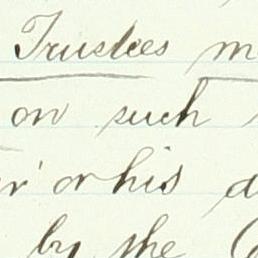 Trustees m
on such
or his d
by the